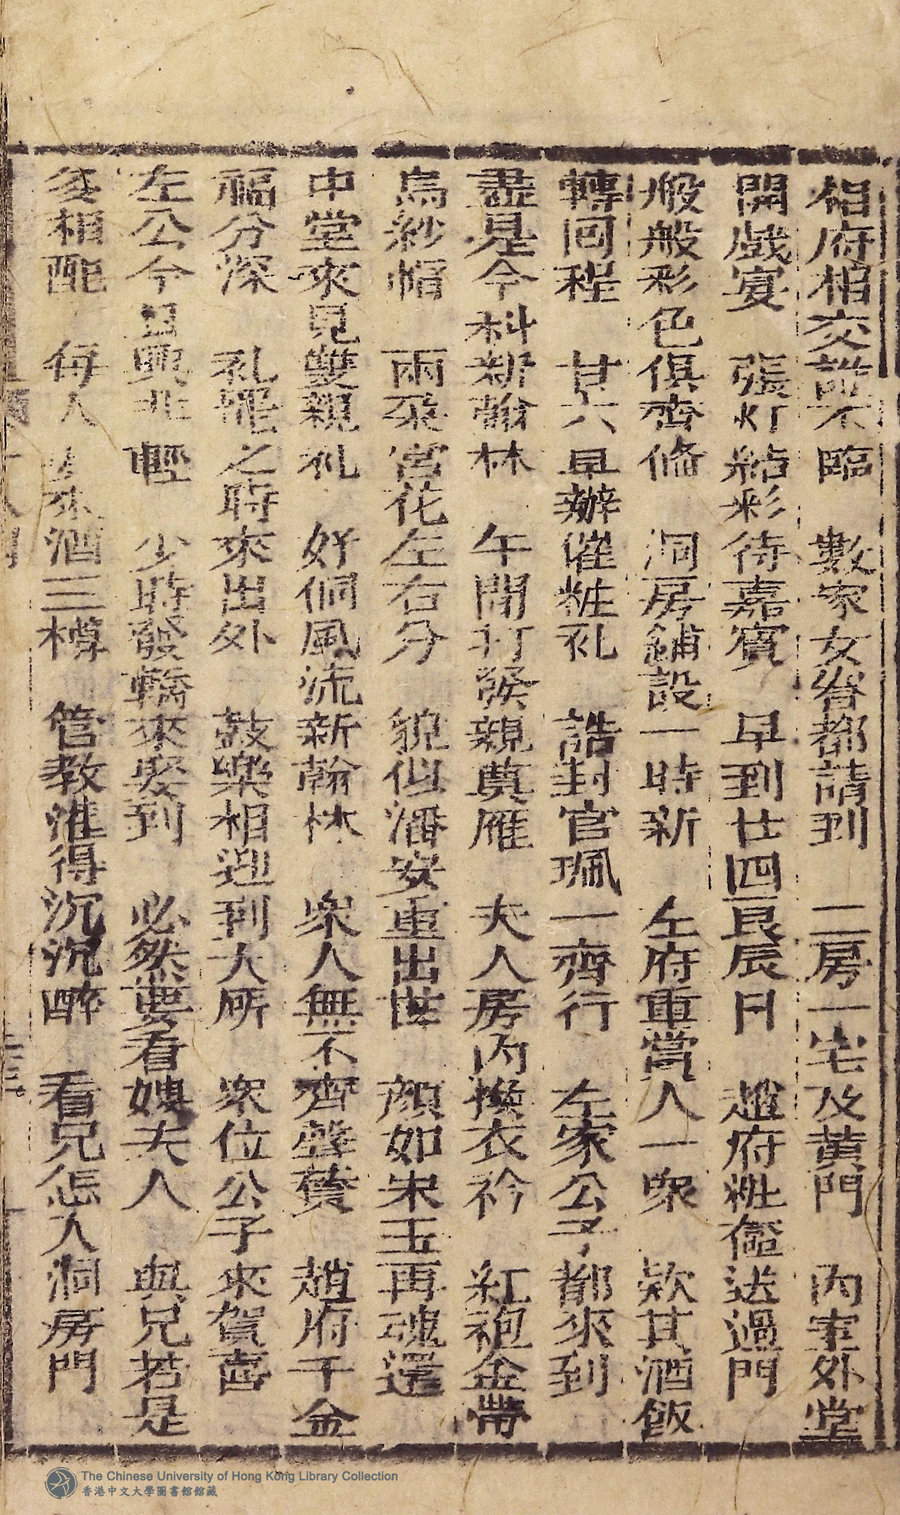 相府相交誰不臨　數家女眷都請到　二房一宅及黃門　內室外堂
開戲宴　張灯結彩待嘉賓　早到廿四良辰日　趙府粧奩送過門
般般彩色俱齊俻　洞房鋪設一時新　左府重賞人一衆　欵其酒飯
轉回程　廿六早辦催粧礼　誥封官珮一齊行　左家公子都來到
盡是今科新翰林　午間打發親奠雁　夫人房內換衣衿　紅袍金帶
烏紗帽　兩朶宮花左右分　貌似潘安重出世　顏如宋玉再魂還
中堂來見雙親礼　好個風流新翰林　衆人無不齊聲贊　趙府千金
福分深　礼畢之時來出外　鼓樂相迎到大所　衆位公子來賀喜
左公今日興非輕　少時發轎來娶到　必然要看嫂夫人　與兄若是
爹相配　每人 來酒三樽　管教灌得沉沉醉　看兄怎入洞房門
The Chinese University of Hong Kong Library Collection
香港中文大學圖書館館藏